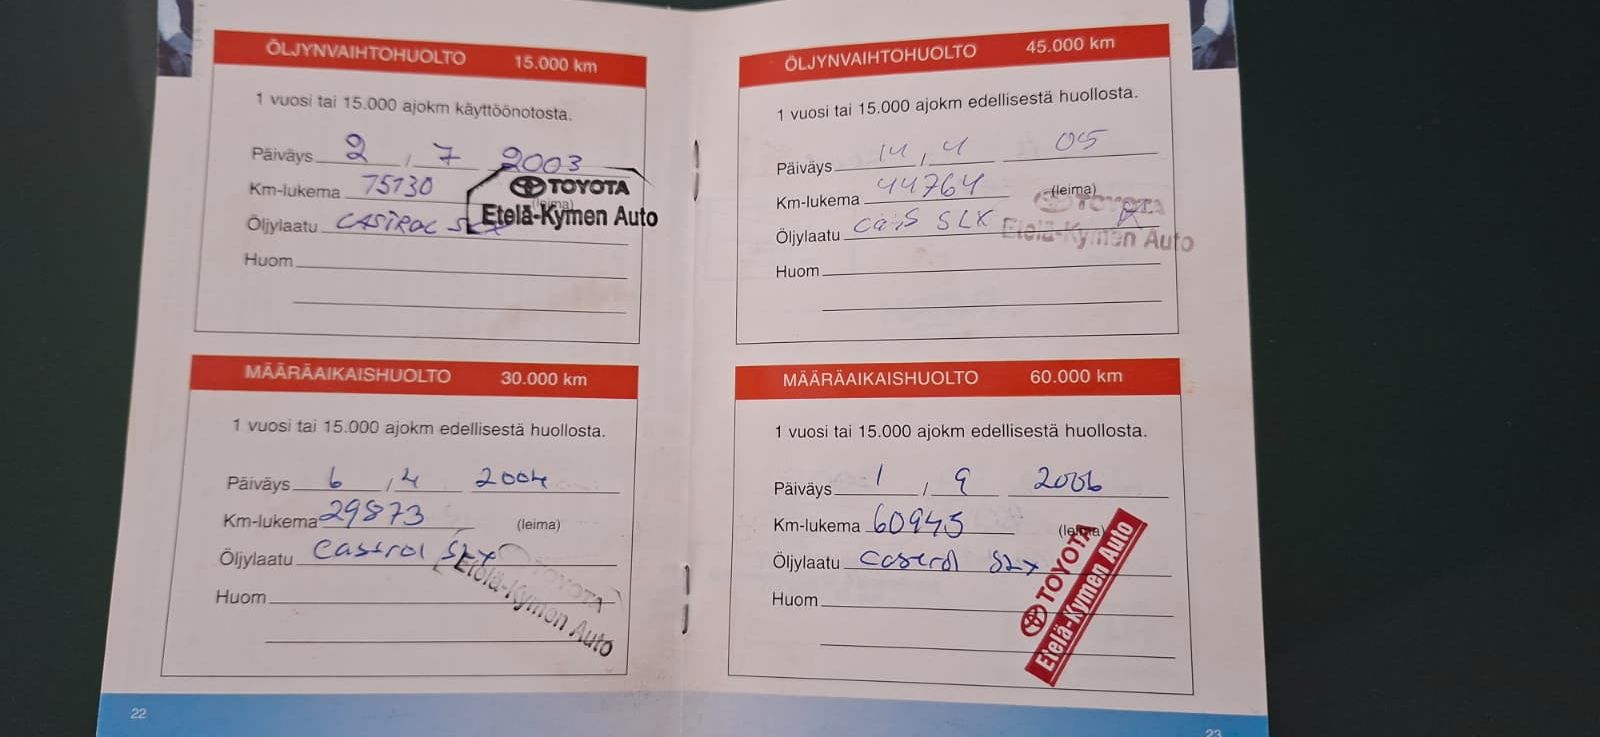 ÖLJYNVAIHTOHUOLTO 15.000 km
1 vuosi tai 15.000 ajokm käyttöönotosta.
Päiväys 2 / 7 2003
Km-lukema 15130
(leima)
TOYOTA
Etelä-Kymen Auto
Öljylaatu CASTROL SLX
Huom
MÄÄRÄAIKAISHUOLTO 30.000 km
1 vuosi tai 15.000 ajokm edellisestä huollosta.
Päiväys 6 / 4 2004
Km-lukema 29873 (leima)
Öljylaatu Castrol SLX
TOYOTA
Etelä-Kymen Auto
Huom
22
ÖLJYNVAIHTOHUOLTO 45.000 km
1 vuosi tai 15.000 ajokm edellisestä huollosta.
Päiväys 14 / 4 05
Km-lukema 44764 (leima)
TOYOTA
Etelä-Kymen Auto
Öljylaatu CaS SLX
Huom
MÄÄRÄAIKAISHUOLTO 60.000 km
1 vuosi tai 15.000 ajokm edellisestä huollosta.
Päiväys 1 / 9 2006
Km-lukema 60945 (leima)
Öljylaatu Castrol SLX
TOYOTA
Etelä-Kymen Auto
Huom
23